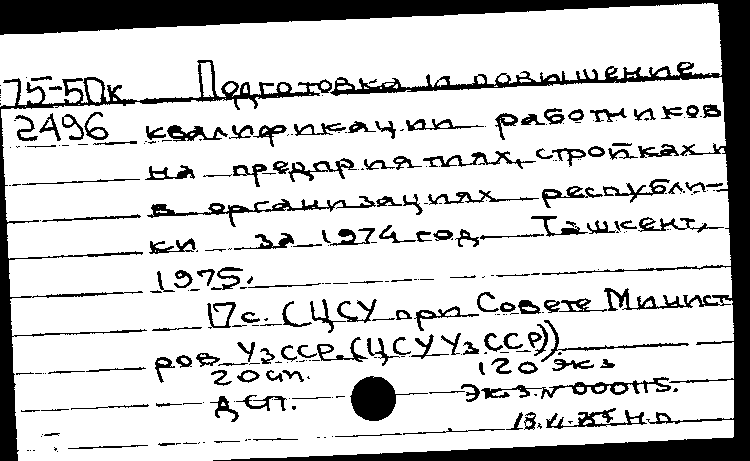 75-5Пк Подготовка и повышение
2496 квалификации работников
на предприятиях, стройках и
в организациях республи-
ки за 1974 год. Ташкент,
1975.
17с. (ЦСУ при Совете Минист
ров УзССР. (ЦСУ УзССР))
20 сп. 120 экз
ДСП. Экз. № 000115.
Н.П.